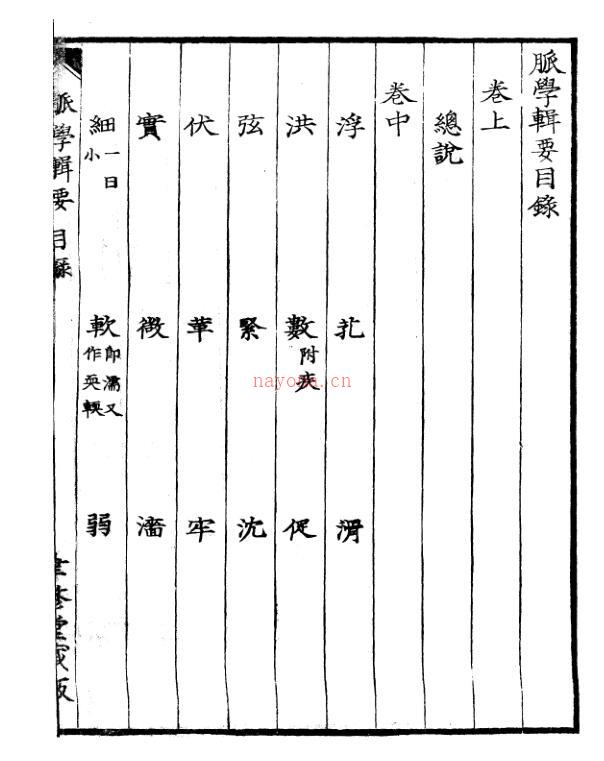 脈學輯要目錄
卷上
總說
卷中
浮 芤 滑
洪 數附疾 促
弦 緊 沈
伏 革 牢
實 微 濇
細一曰小 軟即濡又作耎輭 弱
脈學輯要 目錄
聿修堂藏版
nayona.cn